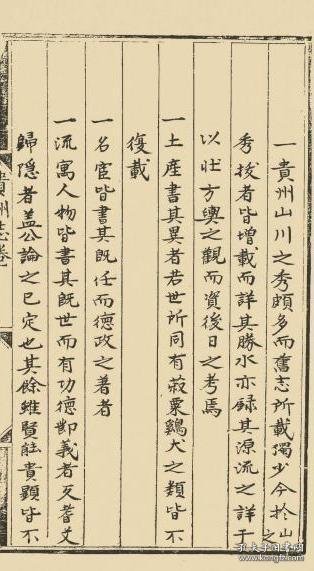 一貴州山川之秀頗多而舊志所載獨少今於山之
秀拔者皆增載而詳其勝水亦録其源流之詳于
以壮方輿之觀而資後日之考焉
一土産書其異者若世所同有菽粟鷄犬之類皆不
復載
一名宦皆書其既任而德政之著者
一流寓人物皆書其既世而有功德節義者及耆艾
歸隱者盖公論之已定也其餘雖賢能貴顯皆不
貴州志卷一
孔夫子旧书网
www.kongfz.com